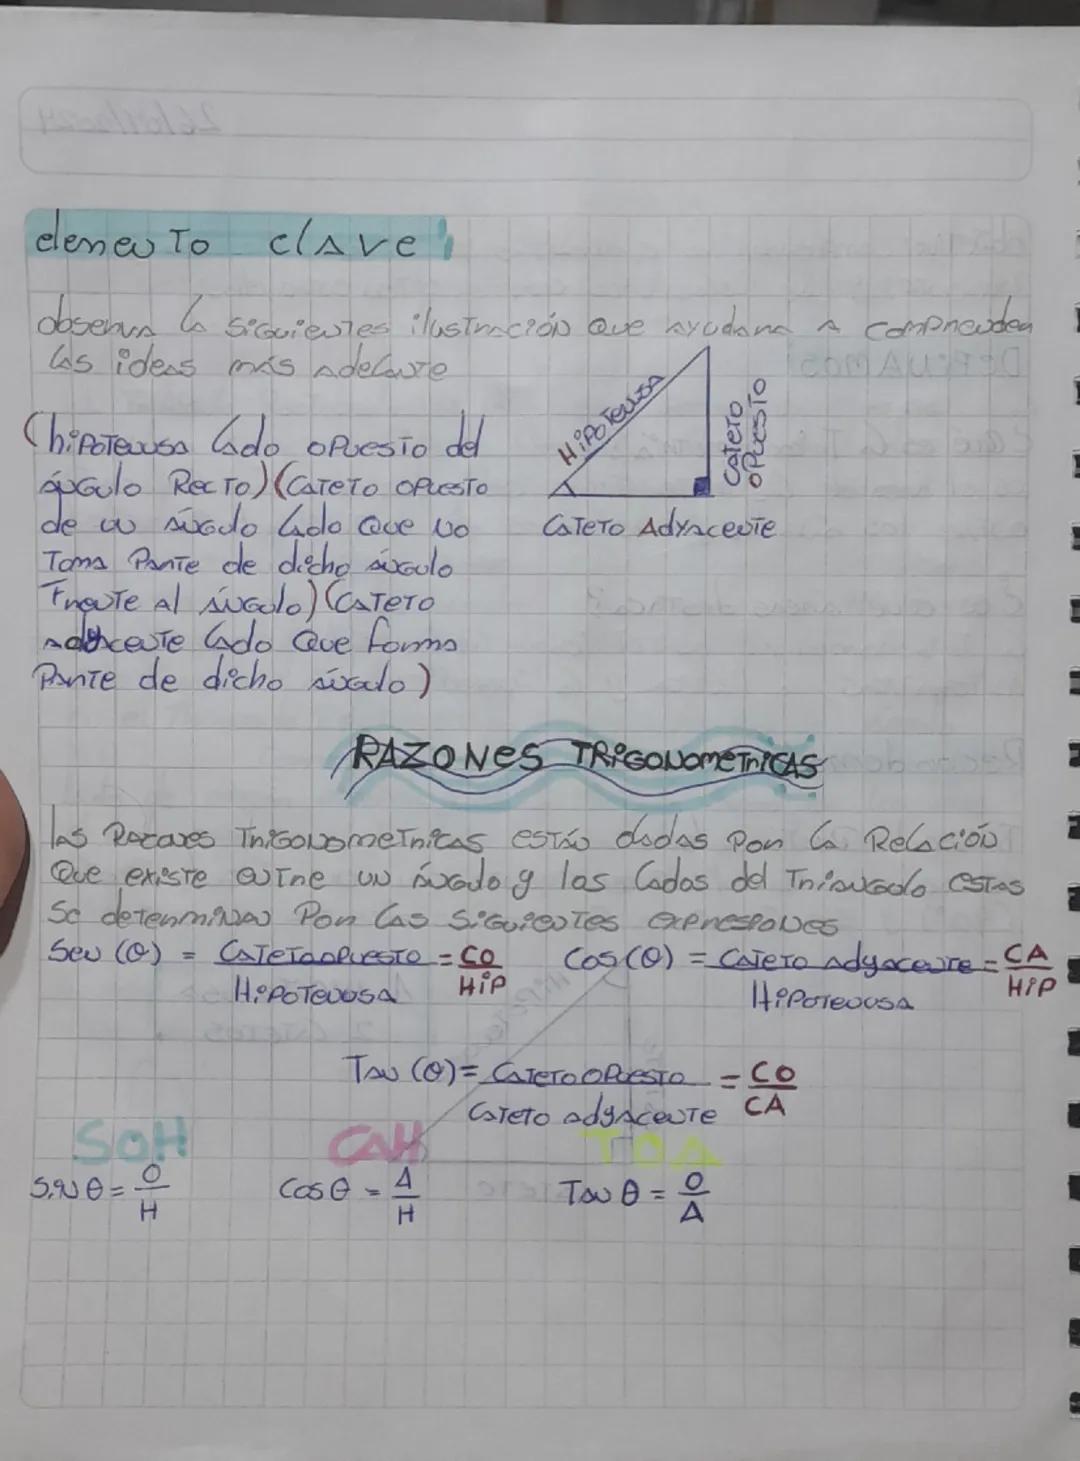 elemento clave
observa la siguientes ilustración que ayudara a comprender
las ideas más adelante
Hipotenusa
Cateto
opuesto
Cateto Adyacente
(hipotenusa lado opuesto del
ángulo Recto) (Cateto opuesto
de un ángulo lado que no
Toma Parte de dicho ángulo
Frente al ángulo) (Cateto
adyacente lado que forma
Parte de dicho ángulo)
RAZONES TRIGONOMETRICAS
las Razones Trigonometricas están dadas por la Relación
Que existe entre un ángulo y los lados del Triángulo estas
se determinan Por las siguientes expresiones
Sen (θ) = Cateto opuesto / Hipotenusa = CO / HIP Cos (θ) = Cateto adyacente / Hipotenusa = CA / HIP
Tan (θ) = Cateto opuesto / Cateto adyacente = CO / CA
SOH CAH TOA
Sin θ = O / H Cos θ = A / H Tan θ = O / A